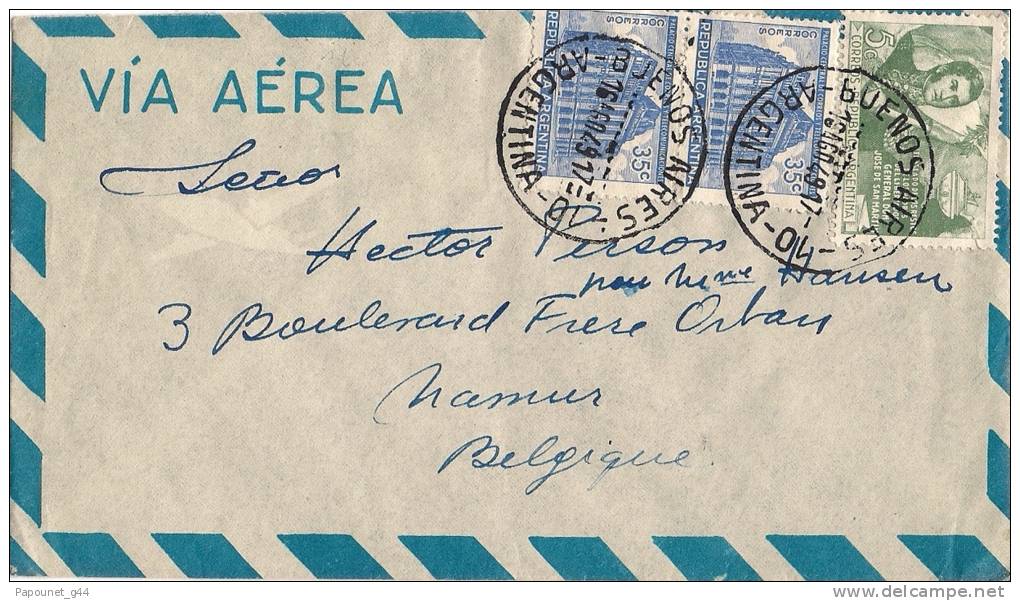 VÍA AÉREA
CORREOS
REPUBLICA ARGENTINA
35c
CORREOS
REPUBLICA ARGENTINA
35c
5c
GENERAL D.
JOSE DE SAN MARTIN
BUENOS AIRES
ARGENTINA
BUENOS AIRES
ARGENTINA
Señor
Hector Person
pour Mme Hansen
3 Boulevard Frere Orban
Namur
Belgique
Papounet_g44
www.delcampe.net